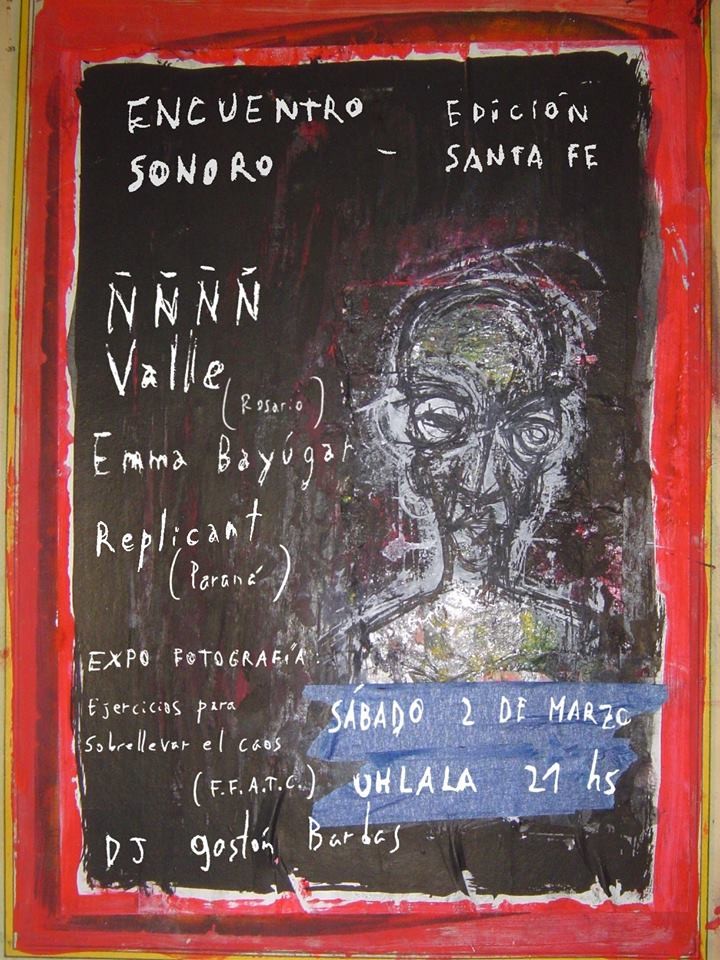 ENCUENTRO SONORO - EDICIÓN SANTA FE
ÑÑÑÑ
Valle
(Rosario)
Emma Bayúgar
Replicant
(Paraná)
EXPO FOTOGRAFÍA:
Ejercicios para
Sobrellevar el caos
(F.F.A.T.C.)
SÁBADO 2 DE MARZO
UHLALA 21 hs
DJ gastón Barbas